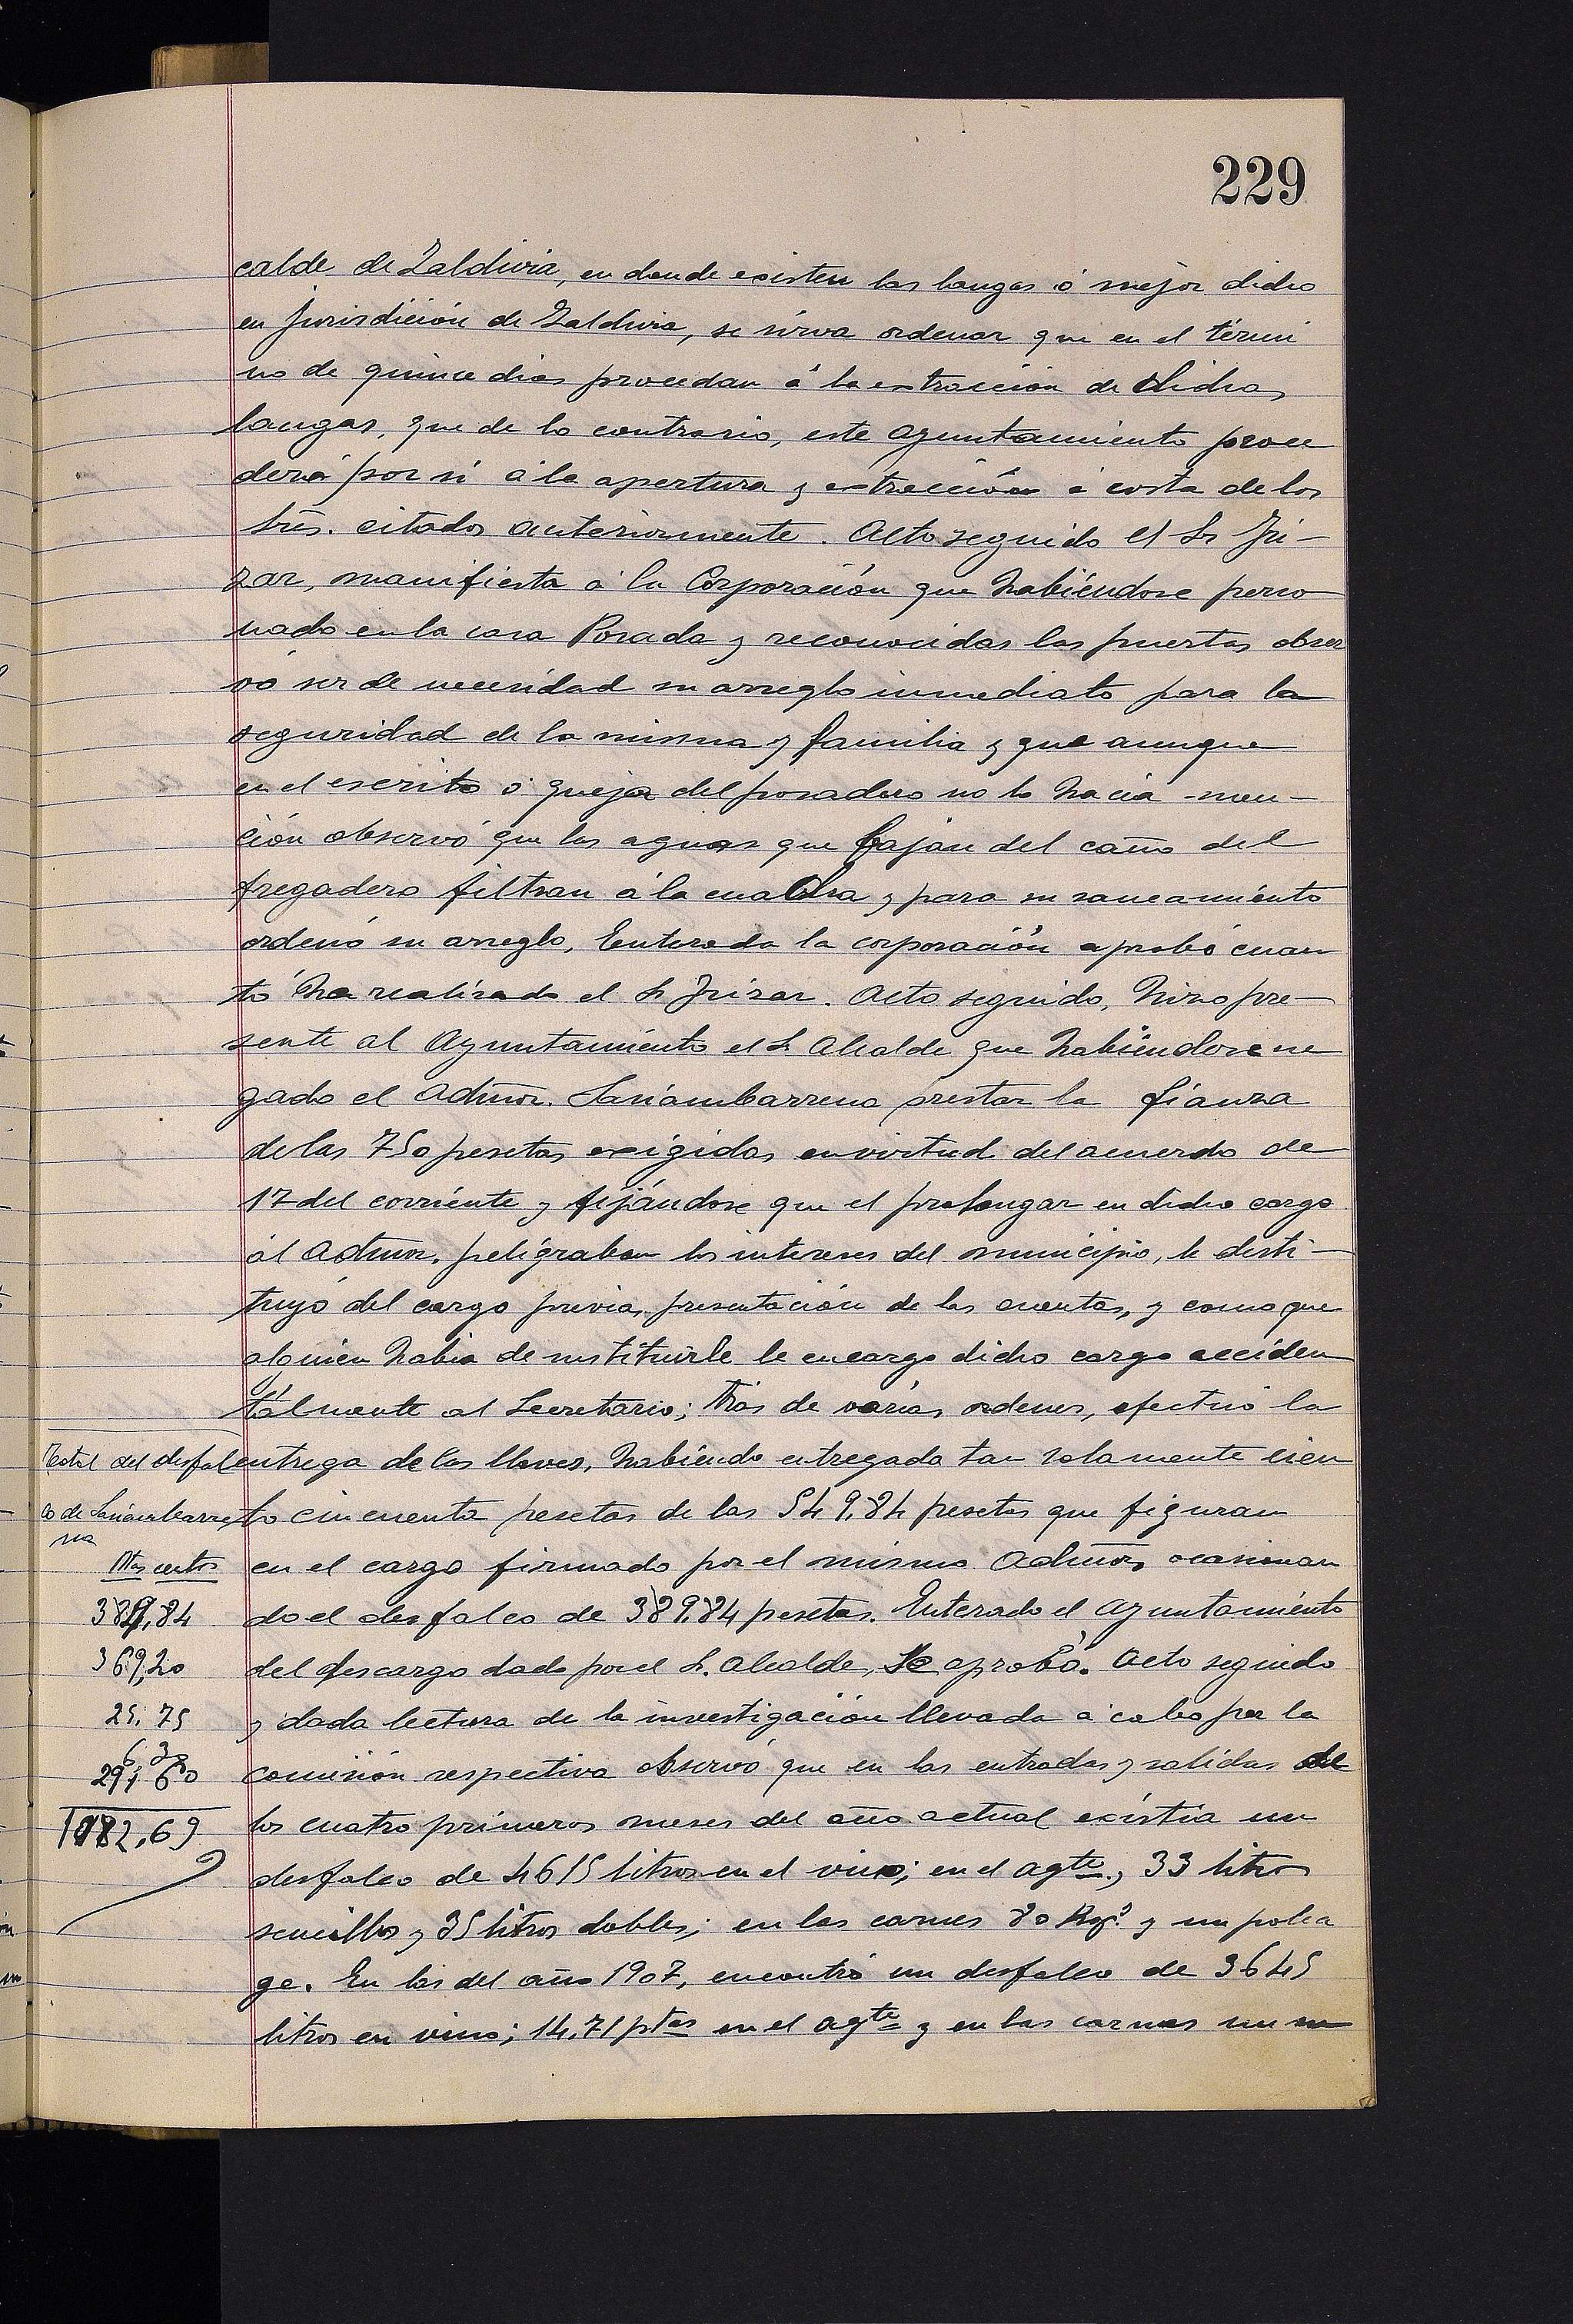 229
calde de Zaldivia, en donde existen las langas ó mejor dicho
en jurisdición de Zaldivia, se sirva ordenar que en el térmi
no de quince dias procedan á la extracción de dichas
langas, que de lo contrario, este ayuntamiento proce
derá por si á la apertura y extracción á costa de los
Sres. citados anteriormente. Acto seguido el Sr Iri-
zar, manifiesta á la Corporación que habiéndose perso
nado en la casa Posada y reconocidas las puertas obser
vó ser de necesidad su arreglo inmediato para la
seguridad de la misma y familia y que aunque
en el escrito ó queja del posadero no lo hacia men-
ción observó que las aguas que bajan del caño del
fregadero filtran á la cuadra y para su saneamiento
ordenó su arreglo, Enterada la corporación aprobó cuan
to ha realizado el Sr Irizar. Acto seguido, hizo pre-
sente al Ayuntamiento el Sr Alcalde que habiéndose ne
gado el Admor. Sariambarrena prestar la fianza
de las 750 pesetas exigidas en virtud del acuerdo de
17 del corriente y fijándose que el prolongar en dicho cargo
al Admor. peligraban los intereses del municipio, le desti-
tuyó del cargo previa presentación de las cuentas, y como que
alguien habia de sustituirle le encargo dicho cargo acciden
talmente al Secretario; tras de varias ordenes, efectuó la
entrega de las llaves, habiendo entregado tan solamente cien
to cincuenta pesetas de las 549,84 pesetas que figuran
en el cargo firmado por el mismo Admor, ocasionan
do el desfalco de 389,84 pesetas. Enterado el ayuntamiento
del descargo dado por el Sr. Alcalde, se aprobó. Acto seguido
y dada lectura de la investigación llevada á cabo por la
comisión respectiva observó que en las entradas y salidas de
los cuatro primeros meses del año actual existia un
desfalco de 4615 litros en el vino; en el agte., 33 litros
sencillos y 35 litros dobles; en las carnes 80 Kgs y un polea
ge. En las del año 1907, encontró un desfalco de 3645
litros en vino; 14,71 ptas en el agte y en las carnes un
Total del desfal
co de Sariambarre
na
Ptas cents
389,84
369,20
25,75
1082,69